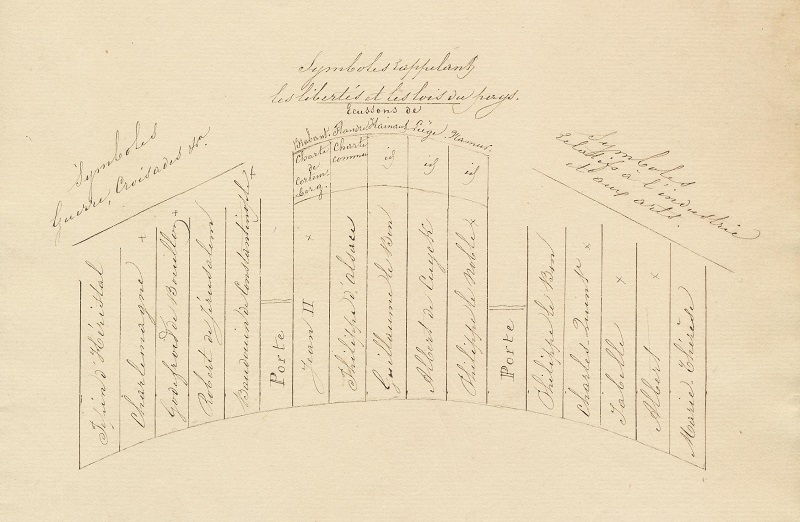 Symboles rappelant
les libertés et les lois du pays.
Ecussons de
Brabant. Flandre Hainaut Liège. Namur.
Charte de Cortemberg.
Charte commune
id
id
id
Symboles
Guerre, Croisades &c.
Symboles
Relatifs à l'industrie
et aux arts.
Pépin d'Héristal
Charlemagne +
Godefroid de Bouillon +
Robert de Jérusalem
Baudouin de Constantinople +
Porte
Jean II ×
Philippe d'alsace
Guillaume le Bon
Albert de Cuyck
Philippe le Noble ×
Porte
Philippe le Bon
Charles Quint ×
Isabelle ×
Albert ×
Marie-Thérèse